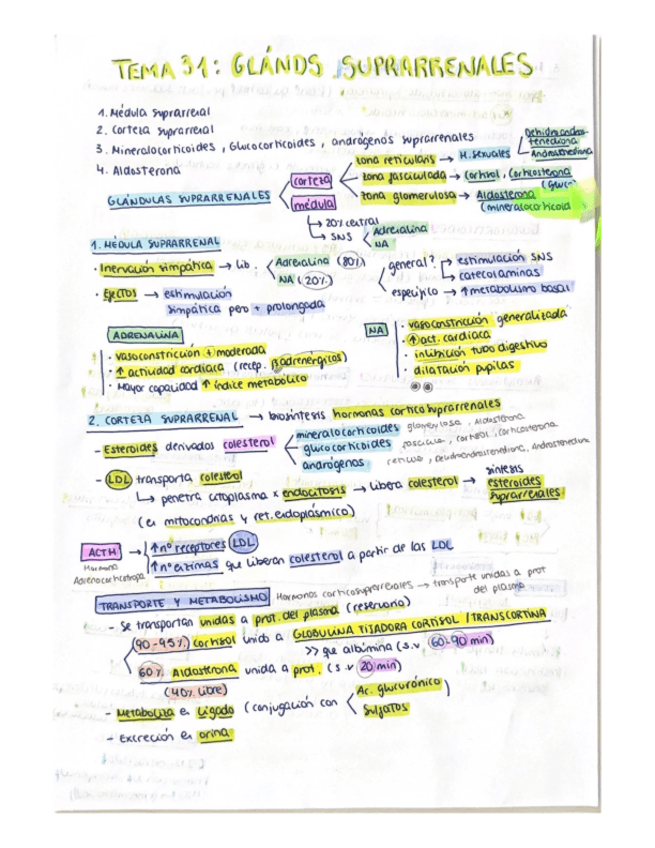 TEMA 31: GLÁNDS SUPRARRENALES
1. Médula suprarrenal
2. Corteza suprarrenal
3. Mineralocorticoides, Glucocorticoides, andrógenos suprarrenales
4. Aldosterona
GLÁNDULAS SUPRARRENALES
corteza
médula
zona reticularis → H. sexuales
Androstendiona
zona fasciculada → cortisol, corticosterona
(gluc
zona glomerulosa → Aldosterona
(mineralocorticoid
→ 20% central
→ SNS
Adrenalina
NA
1. MÉDULA SUPRARRENAL
· Inervación simpática → lib.
Adrenalina (80%)
NA (20%)
general?
estimulación SNS
catecolaminas
específico → ↑ metabolismo basal
· Efectos → estimulación
simpática pero + prolongada
ADRENALINA
· vasoconstricción + moderada
· ↑ actividad cardiaca (recep. β adrenérgicos)
· Mayor capacidad ↑ índice metabólico
NA
· vasoconstricción "generalizada"
· ↑ act. cardiaca
· inhibición tubo digestivo
· dilatación pupilas
2. CORTEZA SUPRARRENAL → biosíntesis hormonas corticosuprarrenales
- Esteroides derivados colesterol
mineralocorticoides glomerulosa, Aldosterona
glucocorticoides fascicula, cortisol, corticosterona
andrógenos reticula, Dehidroandrostenediona, Androstenediona
- LDL transporta colesterol
→ penetra citoplasma x endocitosis → Libera colesterol → síntesis esteroides suprarrenales
(en mitocondrias y ret. endoplásmico)
ACTH
Hormona
Adrenocorticotropa
↑ nº receptores LDL
↑ nº enzimas que liberan colesterol a partir de las LDL
TRANSPORTE Y METABOLISMO Hormonas corticosuprarrenales → transporte unidas a prot
del plasma
- Se transportan unidas a prot. del plasma (reservorio)
(90-95%) cortisol unido a GLOBULINA FIJADORA CORTISOL / TRANSCORTINA
>> que albúmina (s.v 60-90 min)
60% Aldosterona unida a prot. (s.v 20 min)
(40% libre)
- Metaboliza en Hígado (conjugación con
Ac. glucurónico
Sulfatos
)
- Excreción en orina